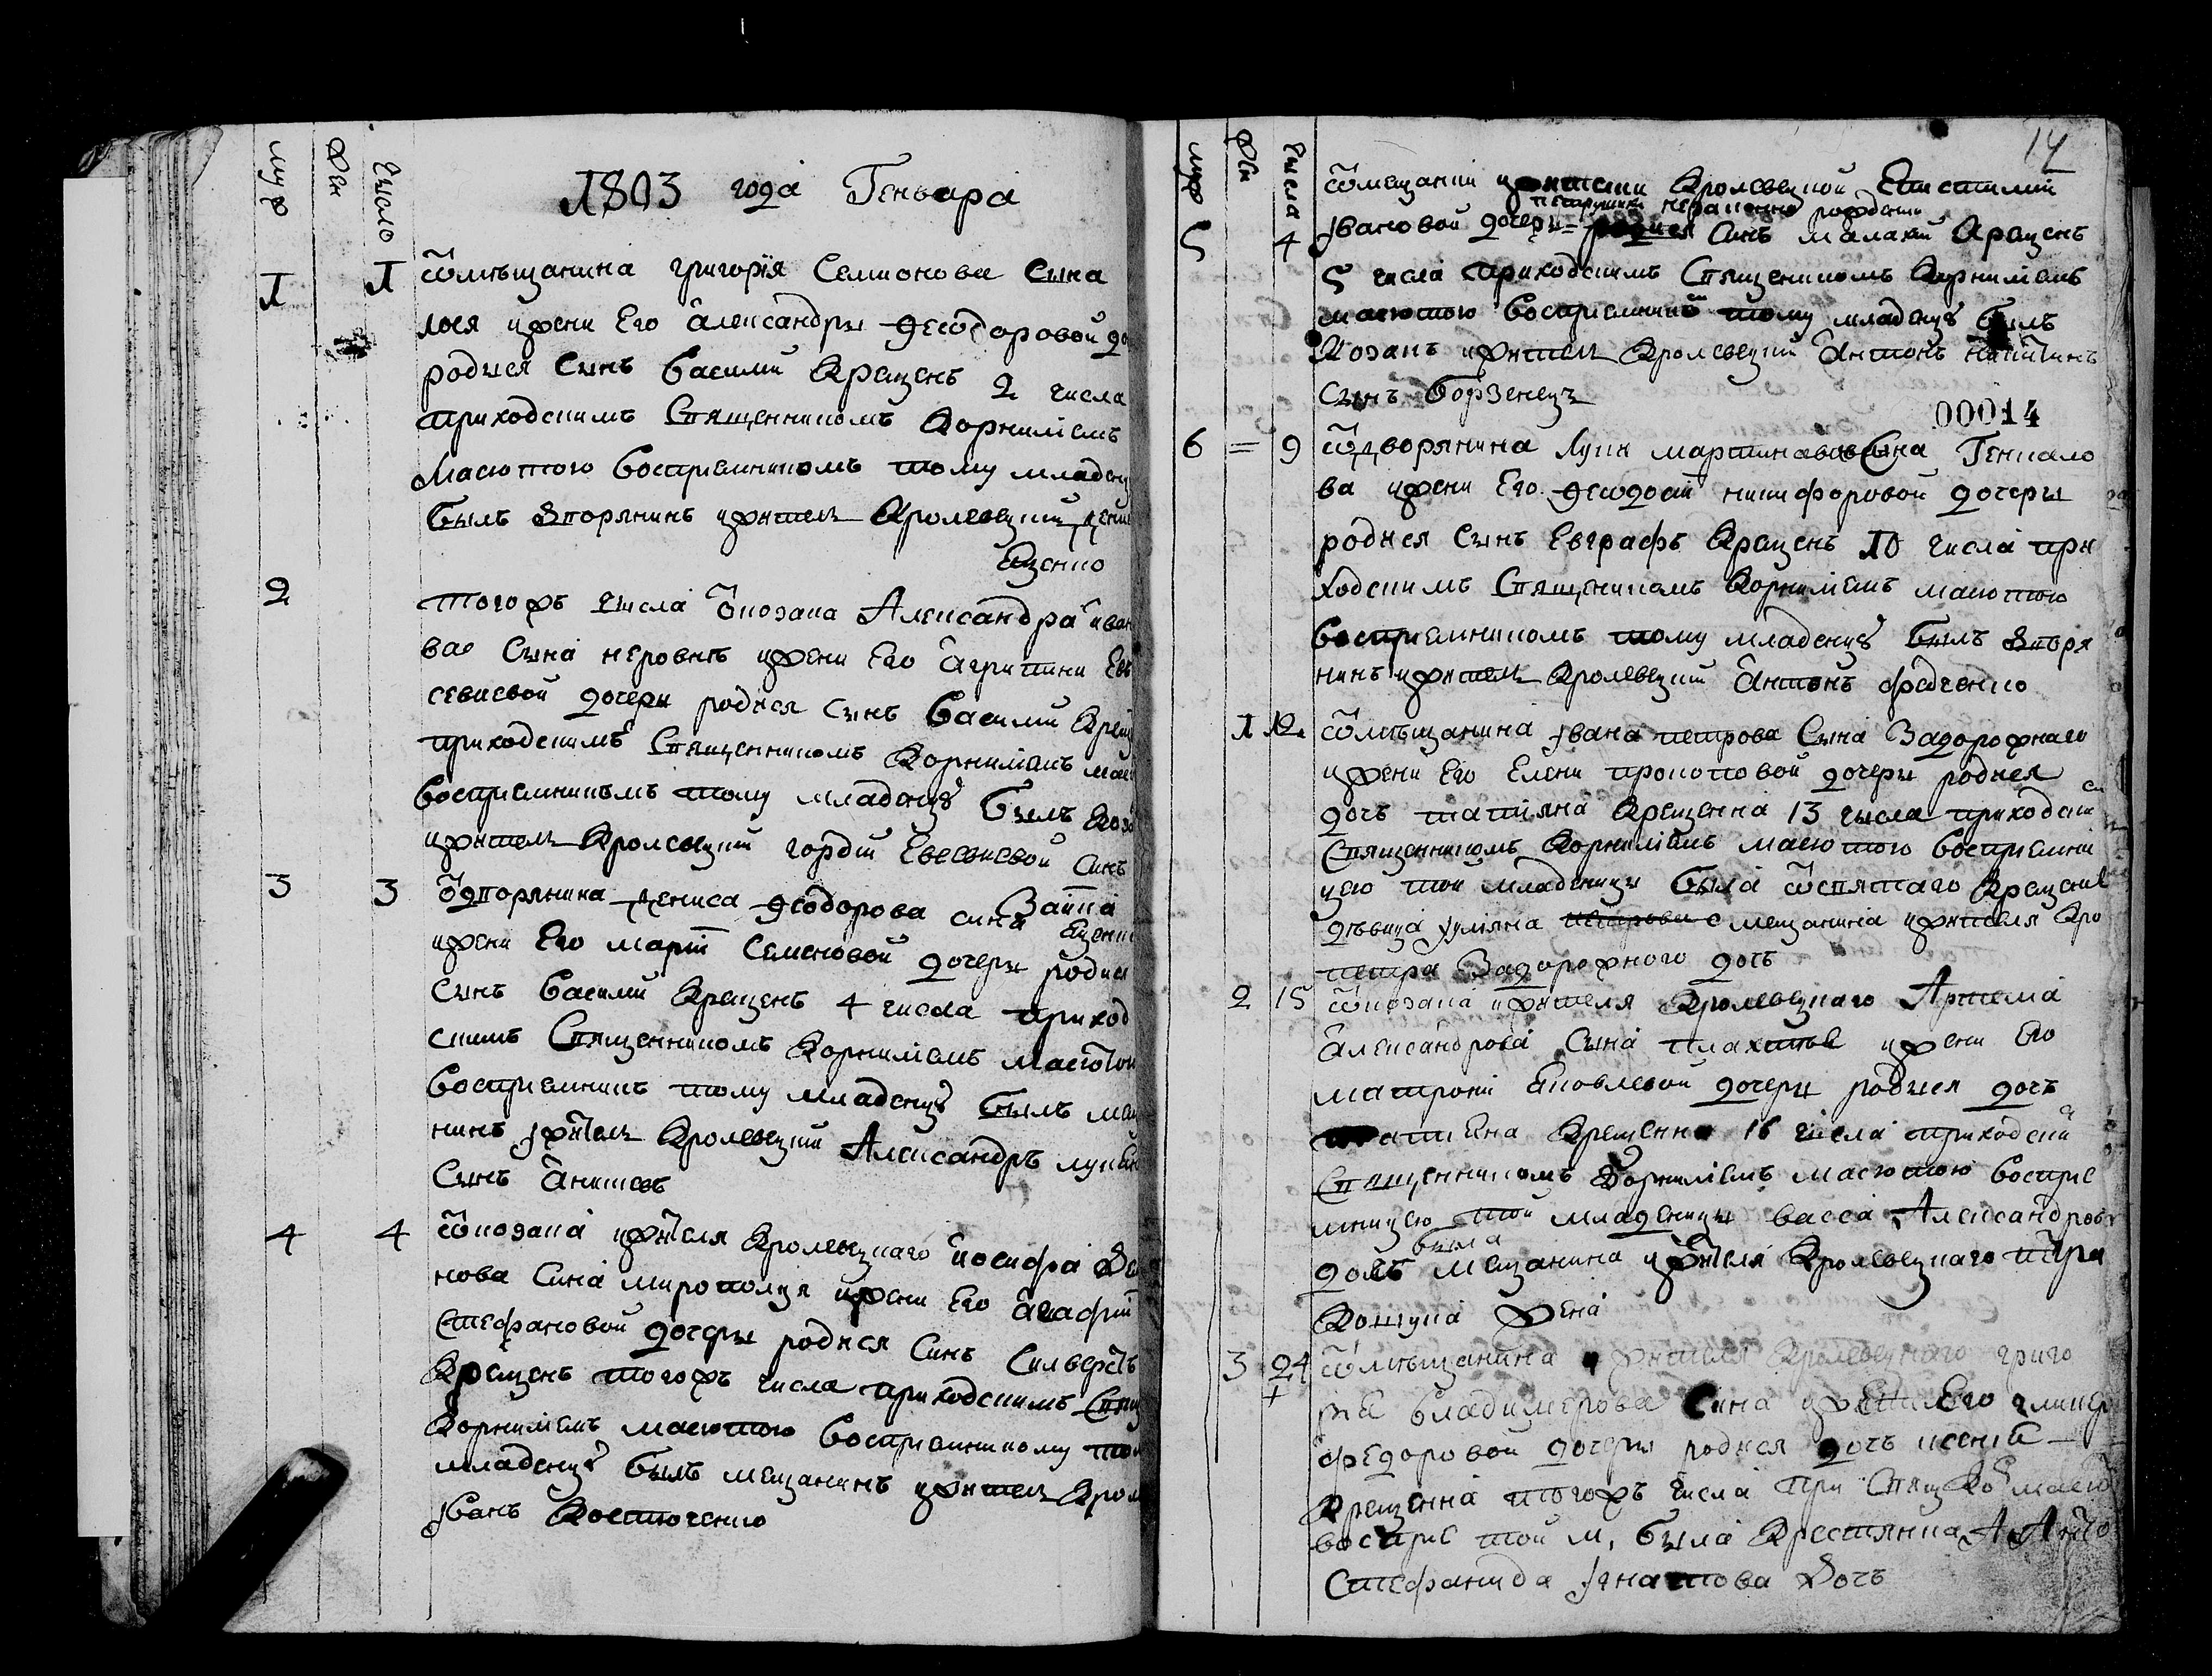 муж
жен
число
1803 года Генвара
1
1
ѿмѣщанина григорїя Семионова Сына
лося ижени Его Александры Ѳеѡдоровой до
родися Сынъ Василий Крещенъ 2 числа
приходскимъ Священникомъ Корнилїемъ
Масютою Восприемникомъ тому младенц
былъ дворянинъ ижителъ Кролевецкий дени
Ещенко
2
тогожъ числа ѿкозака Александра иван
вас Сына неровнѣ ижени Его Агрипини Ев
севиевой дочери родися Сынъ Василий Крещ
приходскимъ Священникомъ Корнилїемъ мас
восприемникъмъ тому младенцу былъ Коза
ижителъ Кролевецкий гордїй Евсевиевой Синъ
Заїка
3
3
ѿдворянина дениса Ѳеодорова сина Ещенк
ижени Его марїи Семеновой дочери родися
Сынъ Василий Крещенъ 4 числа приход
скимъ Священникомъ Корнилїемъ Масютою
Восприемникъ тому младенцу былъ мещ
нинъ ужителъ Кролевецкий Александръ лукин
Сынъ
4
4
ѿкозака ижителя Кролевецкаго иосифа
нова Сина мирополця ижени Его Агафїи
Стефановой дочери родися Синъ Силверстъ
Крещенъ тогожъ числа приходскимъ Свящ
Корнилїемъ масютою Восприемникому то
младенцу былъ мещанинъ ижителъ Крол
Іванъ Костюченко
муж
жен
числа
14
ѿмещанки ижителки Кролевецкой
Івановой дочери
незаконно рождени
5
4
Синъ малахий Крещенъ
5 числа приходскимъ Священикомъ Корнилїемъ
масютою Восприемникъ тому младенцу былъ
Козакъ ижителъ Кролевецкий Антонъ
Сынъ борзенецъ
00014
6
=
9
ѿдворянина Луки мартиновов Сина Генкало
ва ижени Его Ѳеѡдосїи никифоровой дочери
родися Сынъ Евграфъ Крещенъ 10 числа при
ходскимъ Священикомъ Корнилїемъ масютою
восприемникомъ тому младенцу былъ дворя
нинъ ижителъ Кролевецкий Антонъ федченко
1
12
ѿмѣщанина Івана петрова Сына Задорожнаго
ижени Его Елени прокоповой дочери родися
дочъ татїяна Крещенна 13 числа приходски
Священникомъ Корнилїемъ масютою восприемни
цею той младеници была ѿсвятаго Крещенїя
дѣвица улияна мещанина ижителя Кро
петра Задорожного дочъ
2
15
ѿкозака ижителя Кролевецкаго Артема
Александрова Сына ижени Его
матрони Яковлевой дочери родися дочъ
татияна Крещенна 16 числа приходски
Священникомъ Корнилїемъ масютою воспрїе
мницею той младеници васса Александров
была
дочъ мещанина ижителя Кролевецкаго петра
Кошула жена
3
24
+
ѿмѣщанина ижителя Кролевецкаго григо
рїа владимерова Сина ижени Его гликерї
федоровой дочери родися дочъ ксенїа
Крещенна тогожъ числа при Свящ Ко масю
воспрїе той м. была Крестянка
Стефанида Ігнатова дочъ